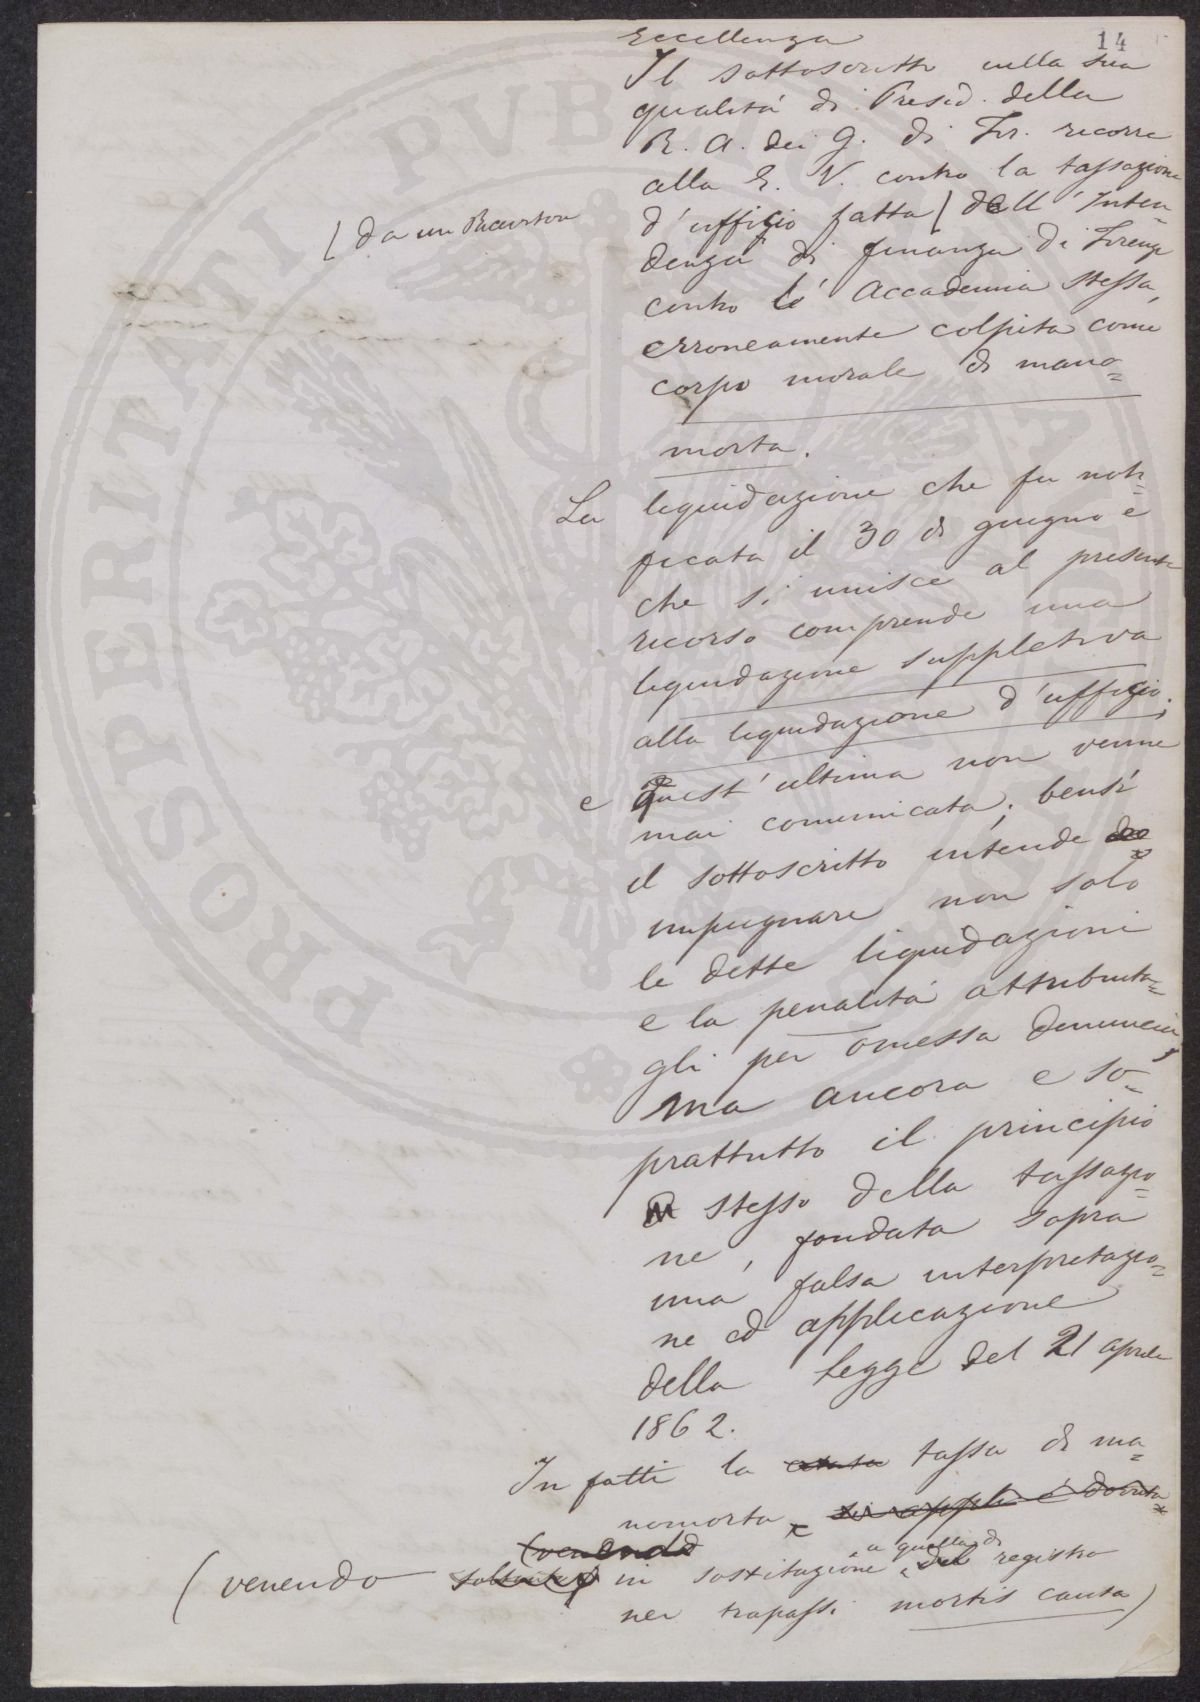 14
Eccellenza
Il sottoscritto nella sua
qualità di Presid. della
R. A. dei G. di Fir. ricorre
alla E. V. contro la tassazione
d'uffizio fatta / dell'Inten-
/ da un Ricevitore
denza di finanza di Firenze
contro l'Accademia stessa,
erroneamente colpita come
corpo morale di mano=
morta.
La liquidazione che fu noti=
ficata il 30 di giugno e
che si unisce al presente
ricorso comprende una
liquidazione suppletiva
alla liquidazione d'uffizio;
e quest'ultima non venne
mai comunicata; bensì
il sottoscritto intende
impugnare non solo
le dette liquidazioni
e la penalità attribuita=
gli per omessa denuncia,
ma ancora e so=
prattutto il principio
stesso della tassazio=
ne, fondata sopra
una falsa interpretazio=
ne ed applicazione
della legge del 21 aprile
1862.
In fatti la tassa di ma=
nomorta si appli è dovuta
(venendo
(venendo soltanto in sostituzione a quella di del registro
nei trapassi mortis causa)
PROSPERITATI PVBLICAE AVGENDAE